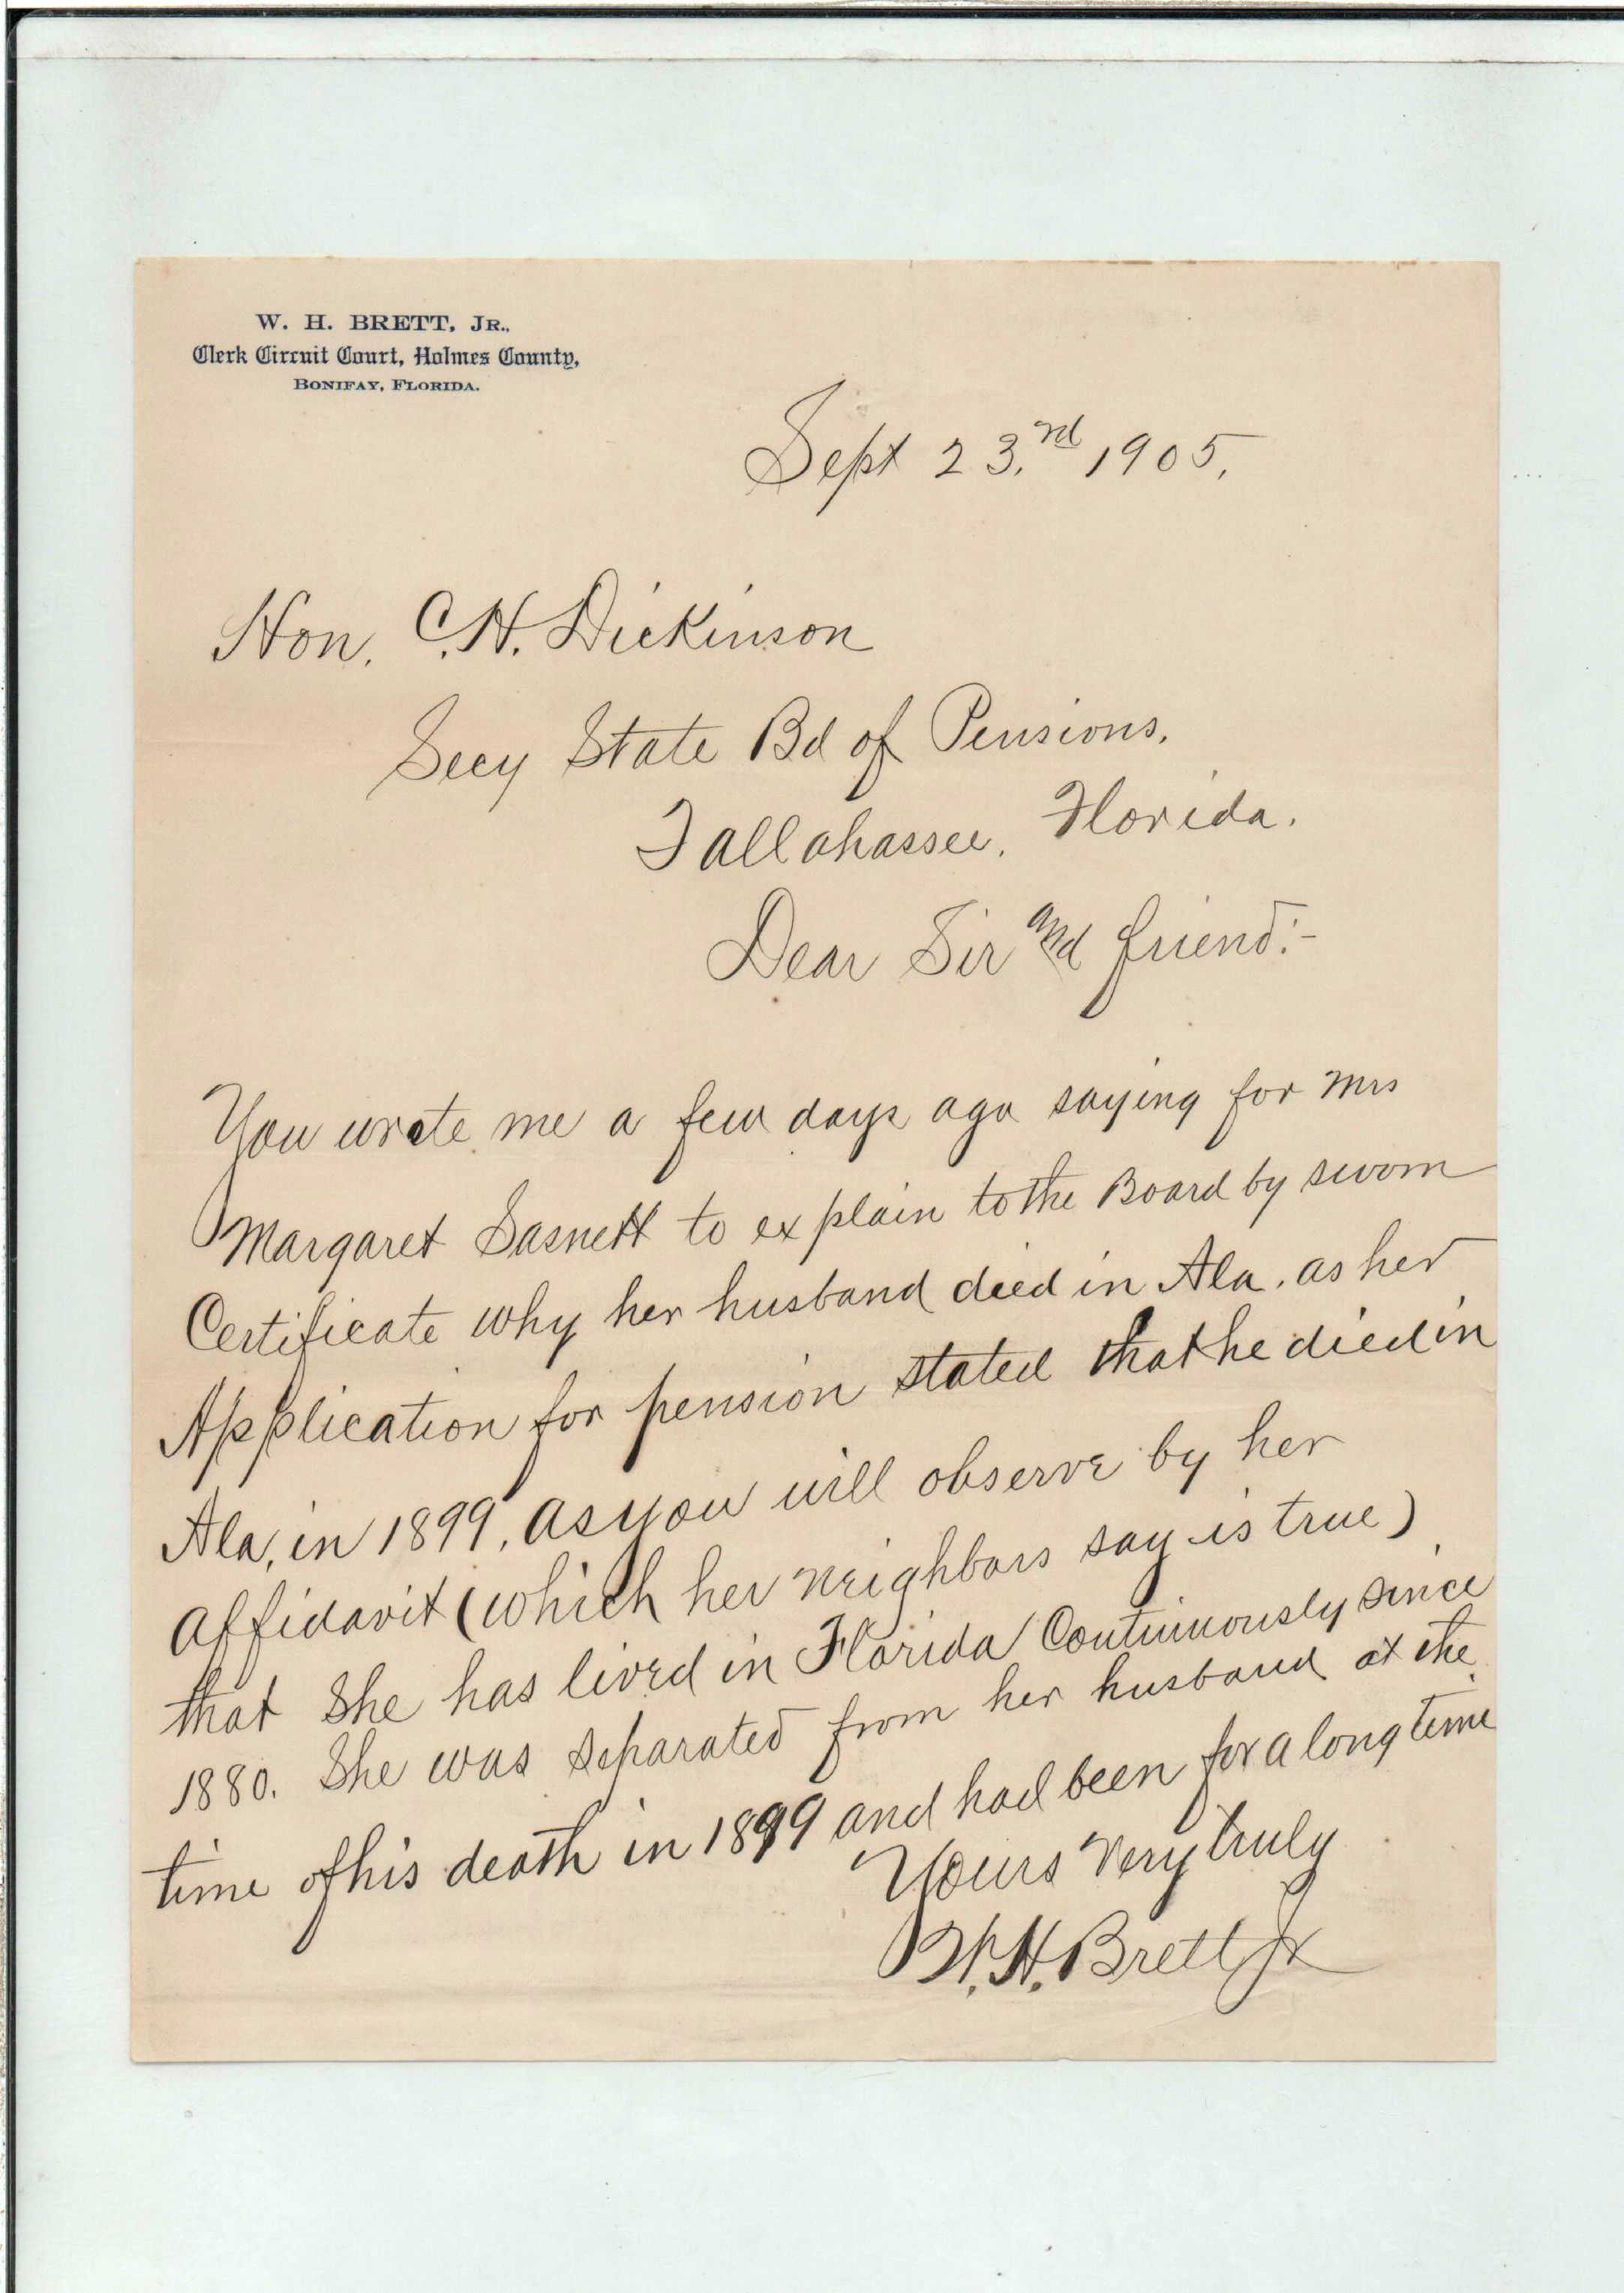 W. H. BRETT, JR.,
Clerk Circuit Court, Holmes County,
BONIFAY, FLORIDA.
Sept 23.rd 1905.
Hon. C.H. Dickinson
Secy State Bd of Pensions.
Tallahassee. Florida.
Dear Sir and friend:-
You wrote me a few days ago saying for Mrs
Margaret Sasnett to explain to the Board by sworn
Certificate why her husband died in Ala. as her
Application for pension stated that he died in
Ala, in 1899. as you will observe by her
affidavit (which her neighbors say is true)
that She has lived in Florida Continuously since
1880. She was separated from her husband at the
time of his death in 1899 and had been for a long time
Yours Very truly
W.H. Brett Jr